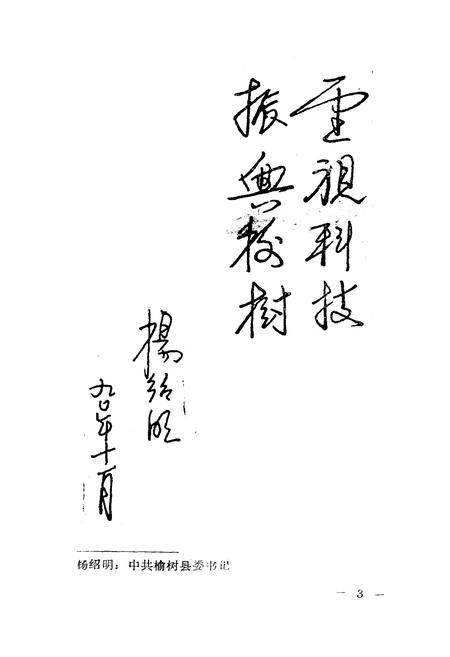 重视科技
振兴榆树
楊绍明
九〇年十月
杨绍明：中共榆树县委书记
— 3 —